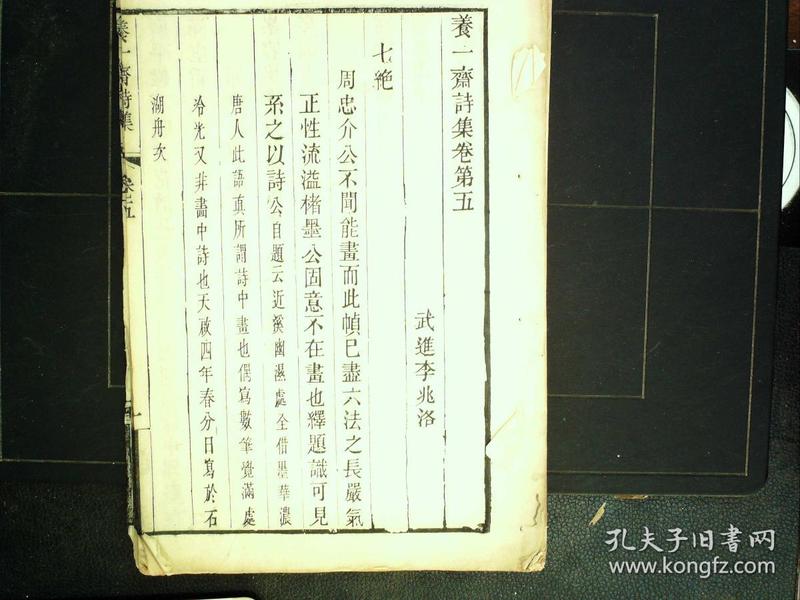 養一齋詩集卷第五
武進李兆洛
七絶
周忠介公不聞能畫而此幀已盡六法之長嚴氣
正性流溢楮墨公固意不在畫也繹題識可見
系之以詩公自題云近溪幽濕處全借墨華濃
唐人此語真所謂詩中畫也偶寫數筆覺滿處
冷光又非畫中詩也天啟四年春分日寫於石
湖舟次
養一齋詩集
一
孔夫子旧书网
www.kongfz.com